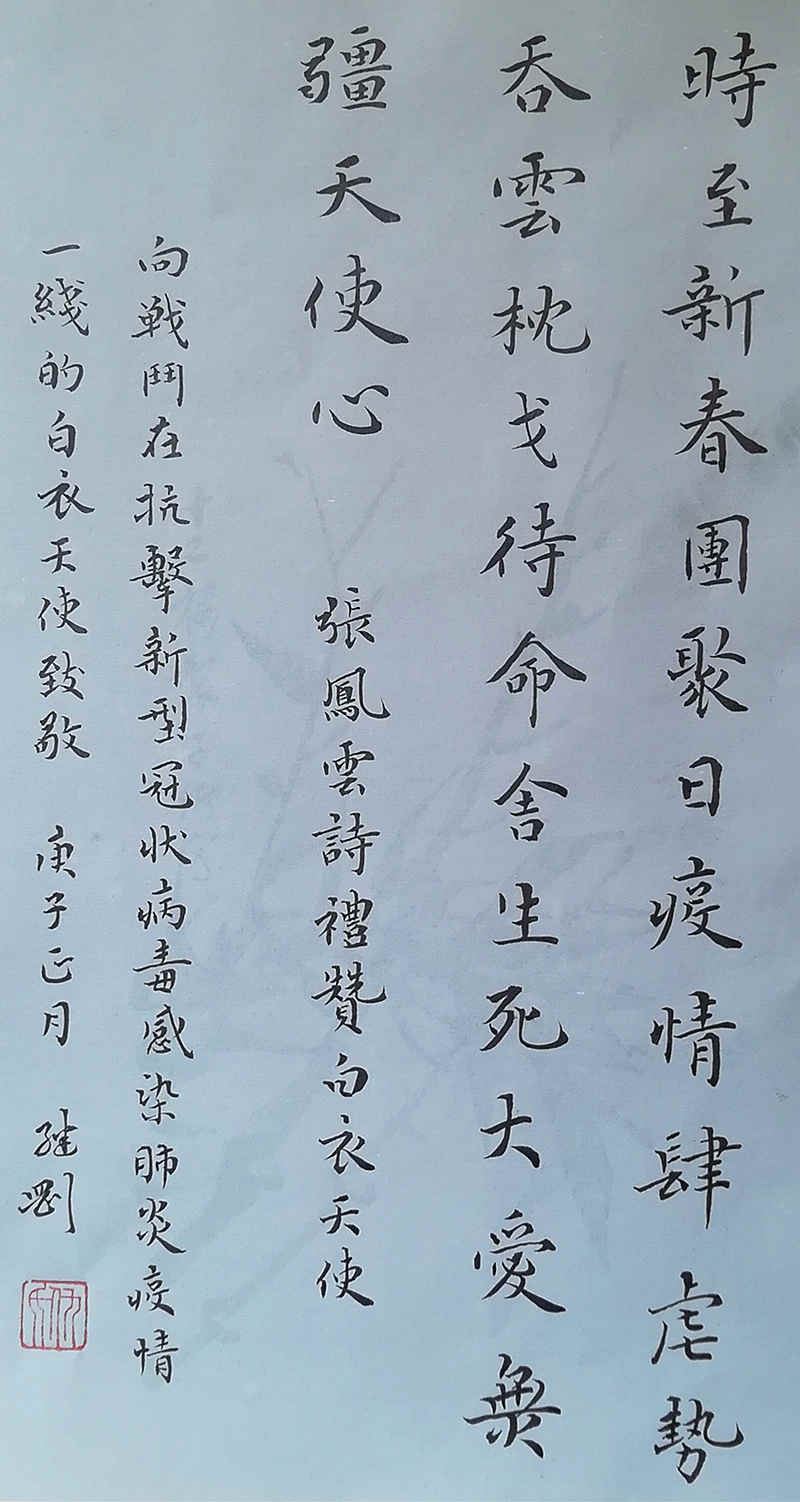 時至新春團聚日疫情肆虐勢
吞雲枕戈待命舍生死大愛無
疆天使心 張鳳雲詩禮贊白衣天使
向戰鬥在抗擊新型冠狀病毒感染肺炎疫情
一綫的白衣天使致敬 庚子正月 繼剛